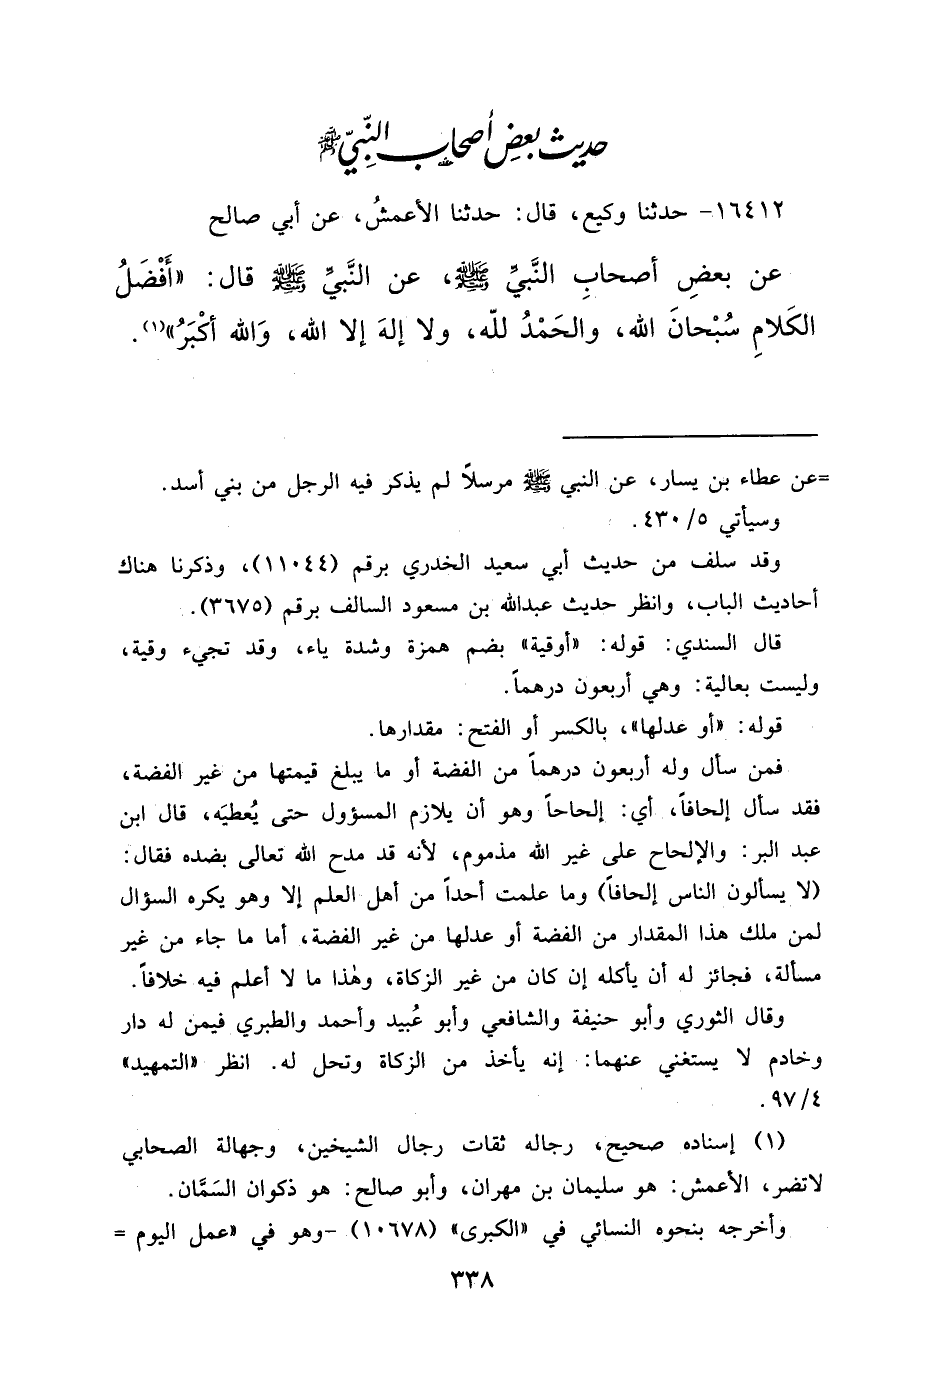 حديث بعض أصحاب النبيّ ﷺ
١٦٤١٢- حدثنا وكيع، قال: حدثنا الأعمشُ، عن أبي صالح
عن بعضِ أصحابِ النَّبيِّ ﷺ، عن النَّبيِّ ﷺ قال: «أَفْضَلُ
الكَلامِ سُبْحانَ الله، والحَمْدُ للّه، ولا إلهَ إلا الله، وَالله أكْبَرُ»(١).
=عن عطاء بن يسار، عن النبي ﷺ مرسلاً لم يذكر فيه الرجل من بني أسد.
وسيأتي ٤٣٠/٥.
وقد سلف من حديث أبي سعيد الخدري برقم (١١٠٤٤)، وذكرنا هناك
أحاديث الباب، وانظر حديث عبدالله بن مسعود السالف برقم (٣٦٧٥).
قال السندي: قوله: «أوقية» بضم همزة وشدة ياء، وقد تجيء وقية،
وليست بعالية: وهي أربعون درهماً.
قوله: «أو عدلها»، بالكسر أو الفتح: مقدارها.
فمن سأل وله أربعون درهماً من الفضة أو ما يبلغ قيمتها من غير الفضة،
فقد سأل إلحافاً، أي: إلحاحاً وهو أن يلازم المسؤول حتى يُعطيَه، قال ابن
عبد البر: والإلحاح على غير الله مذموم، لأنه قد مدح الله تعالى بضده فقال:
(لا يسألون الناس إلحافاً) وما علمت أحداً من أهل العلم إلا وهو يكره السؤال
لمن ملك هذا المقدار من الفضة أو عدلها من غير الفضة، أما ما جاء من غير
مسألة، فجائز له أن يأكله إن كان من غير الزكاة، وهٰذا ما لا أعلم فيه خلافاً.
وقال الثوري وأبو حنيفة والشافعي وأبو عُبيد وأحمد والطبري فيمن له دار
وخادم لا يستغني عنهما: إنه يأخذ من الزكاة وتحل له. انظر «التمهيد»
٩٧/٤.
(١) إسناده صحيح، رجاله ثقات رجال الشيخين، وجهالة الصحابي
لاتضر، الأعمش: هو سليمان بن مهران، وأبو صالح: هو ذكوان السَمَّان.
وأخرجه بنحوه النسائي في «الكبرى» (١٠٦٧٨) -وهو في «عمل اليوم =
٣٣٨